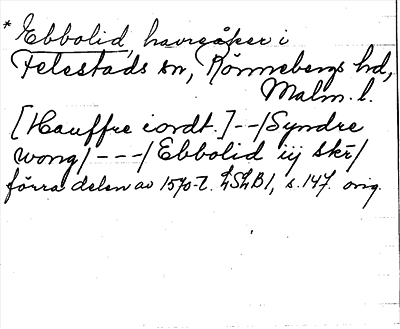 * Ebbolid, havreåker i
Felestads sn, Rönnebergs hd,
Malm. l.
[Hauffre iordt.]--/Syndre
wong/---/Ebbolid iij skr/
förra delen av 1570-t. LSLB1, s. 147. orig.